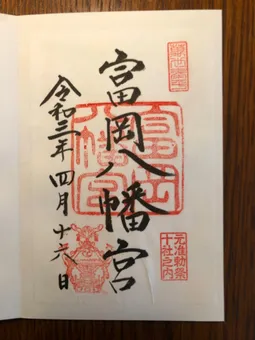 富岡八幡宮
令和三年四月十六日
富岡八幡宮
元准勅祭
十社之内